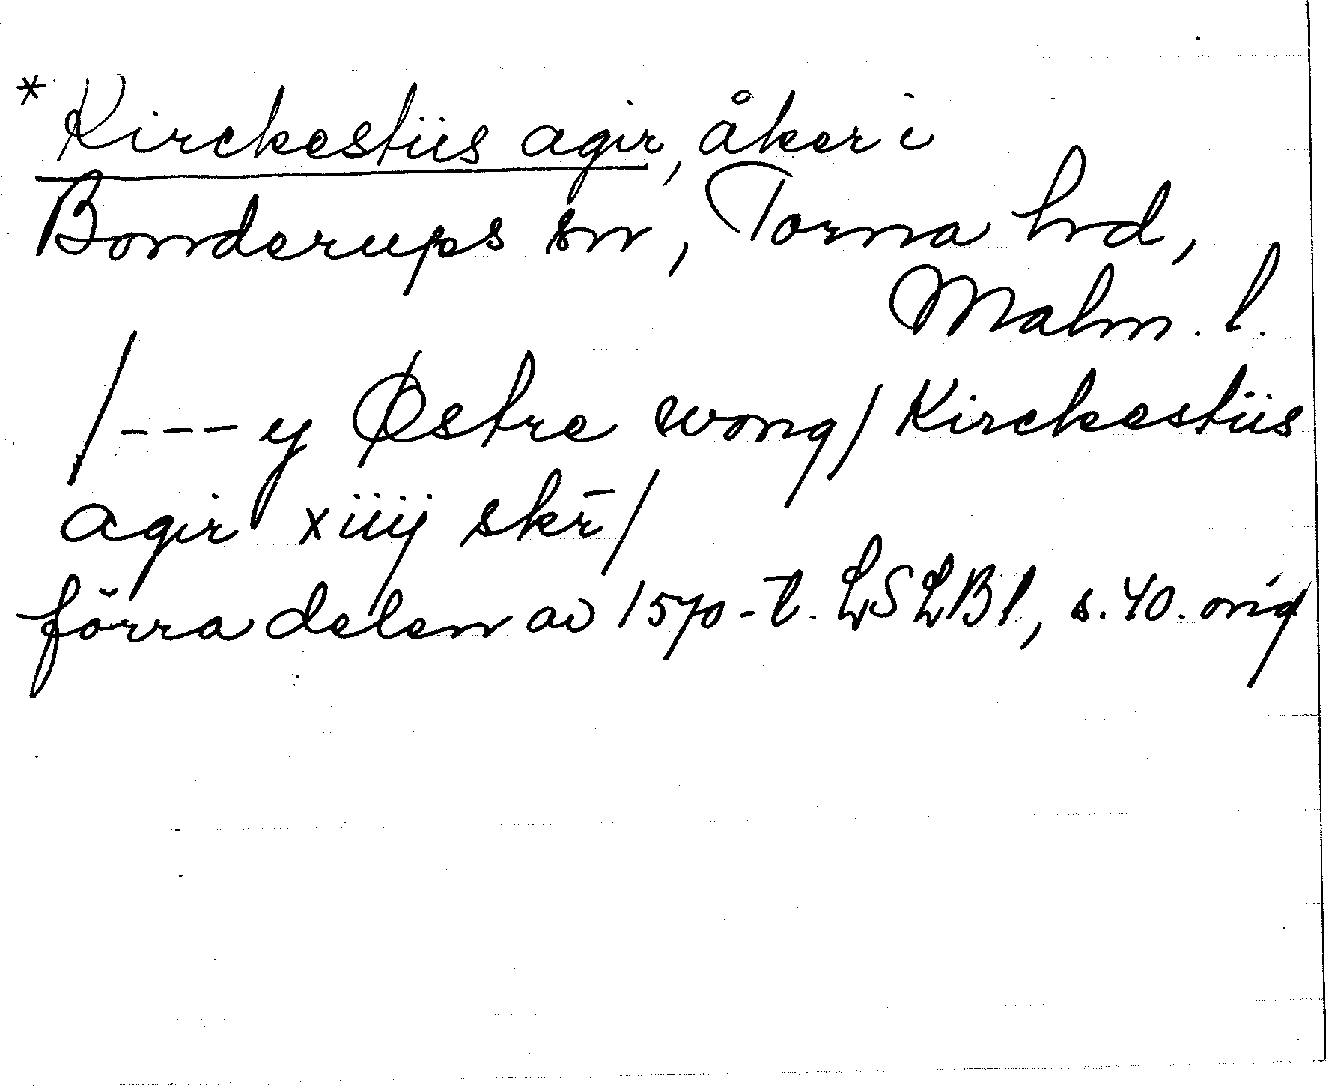 * Kirckestiis agir, åker i
Bonderups sn, Torna hd,
Malm. l.
/--- y Østre wong/ Kirckestiis
agir xiiij skr̄/
förra delen av 1570-t. LSLB1, s. 40. orig